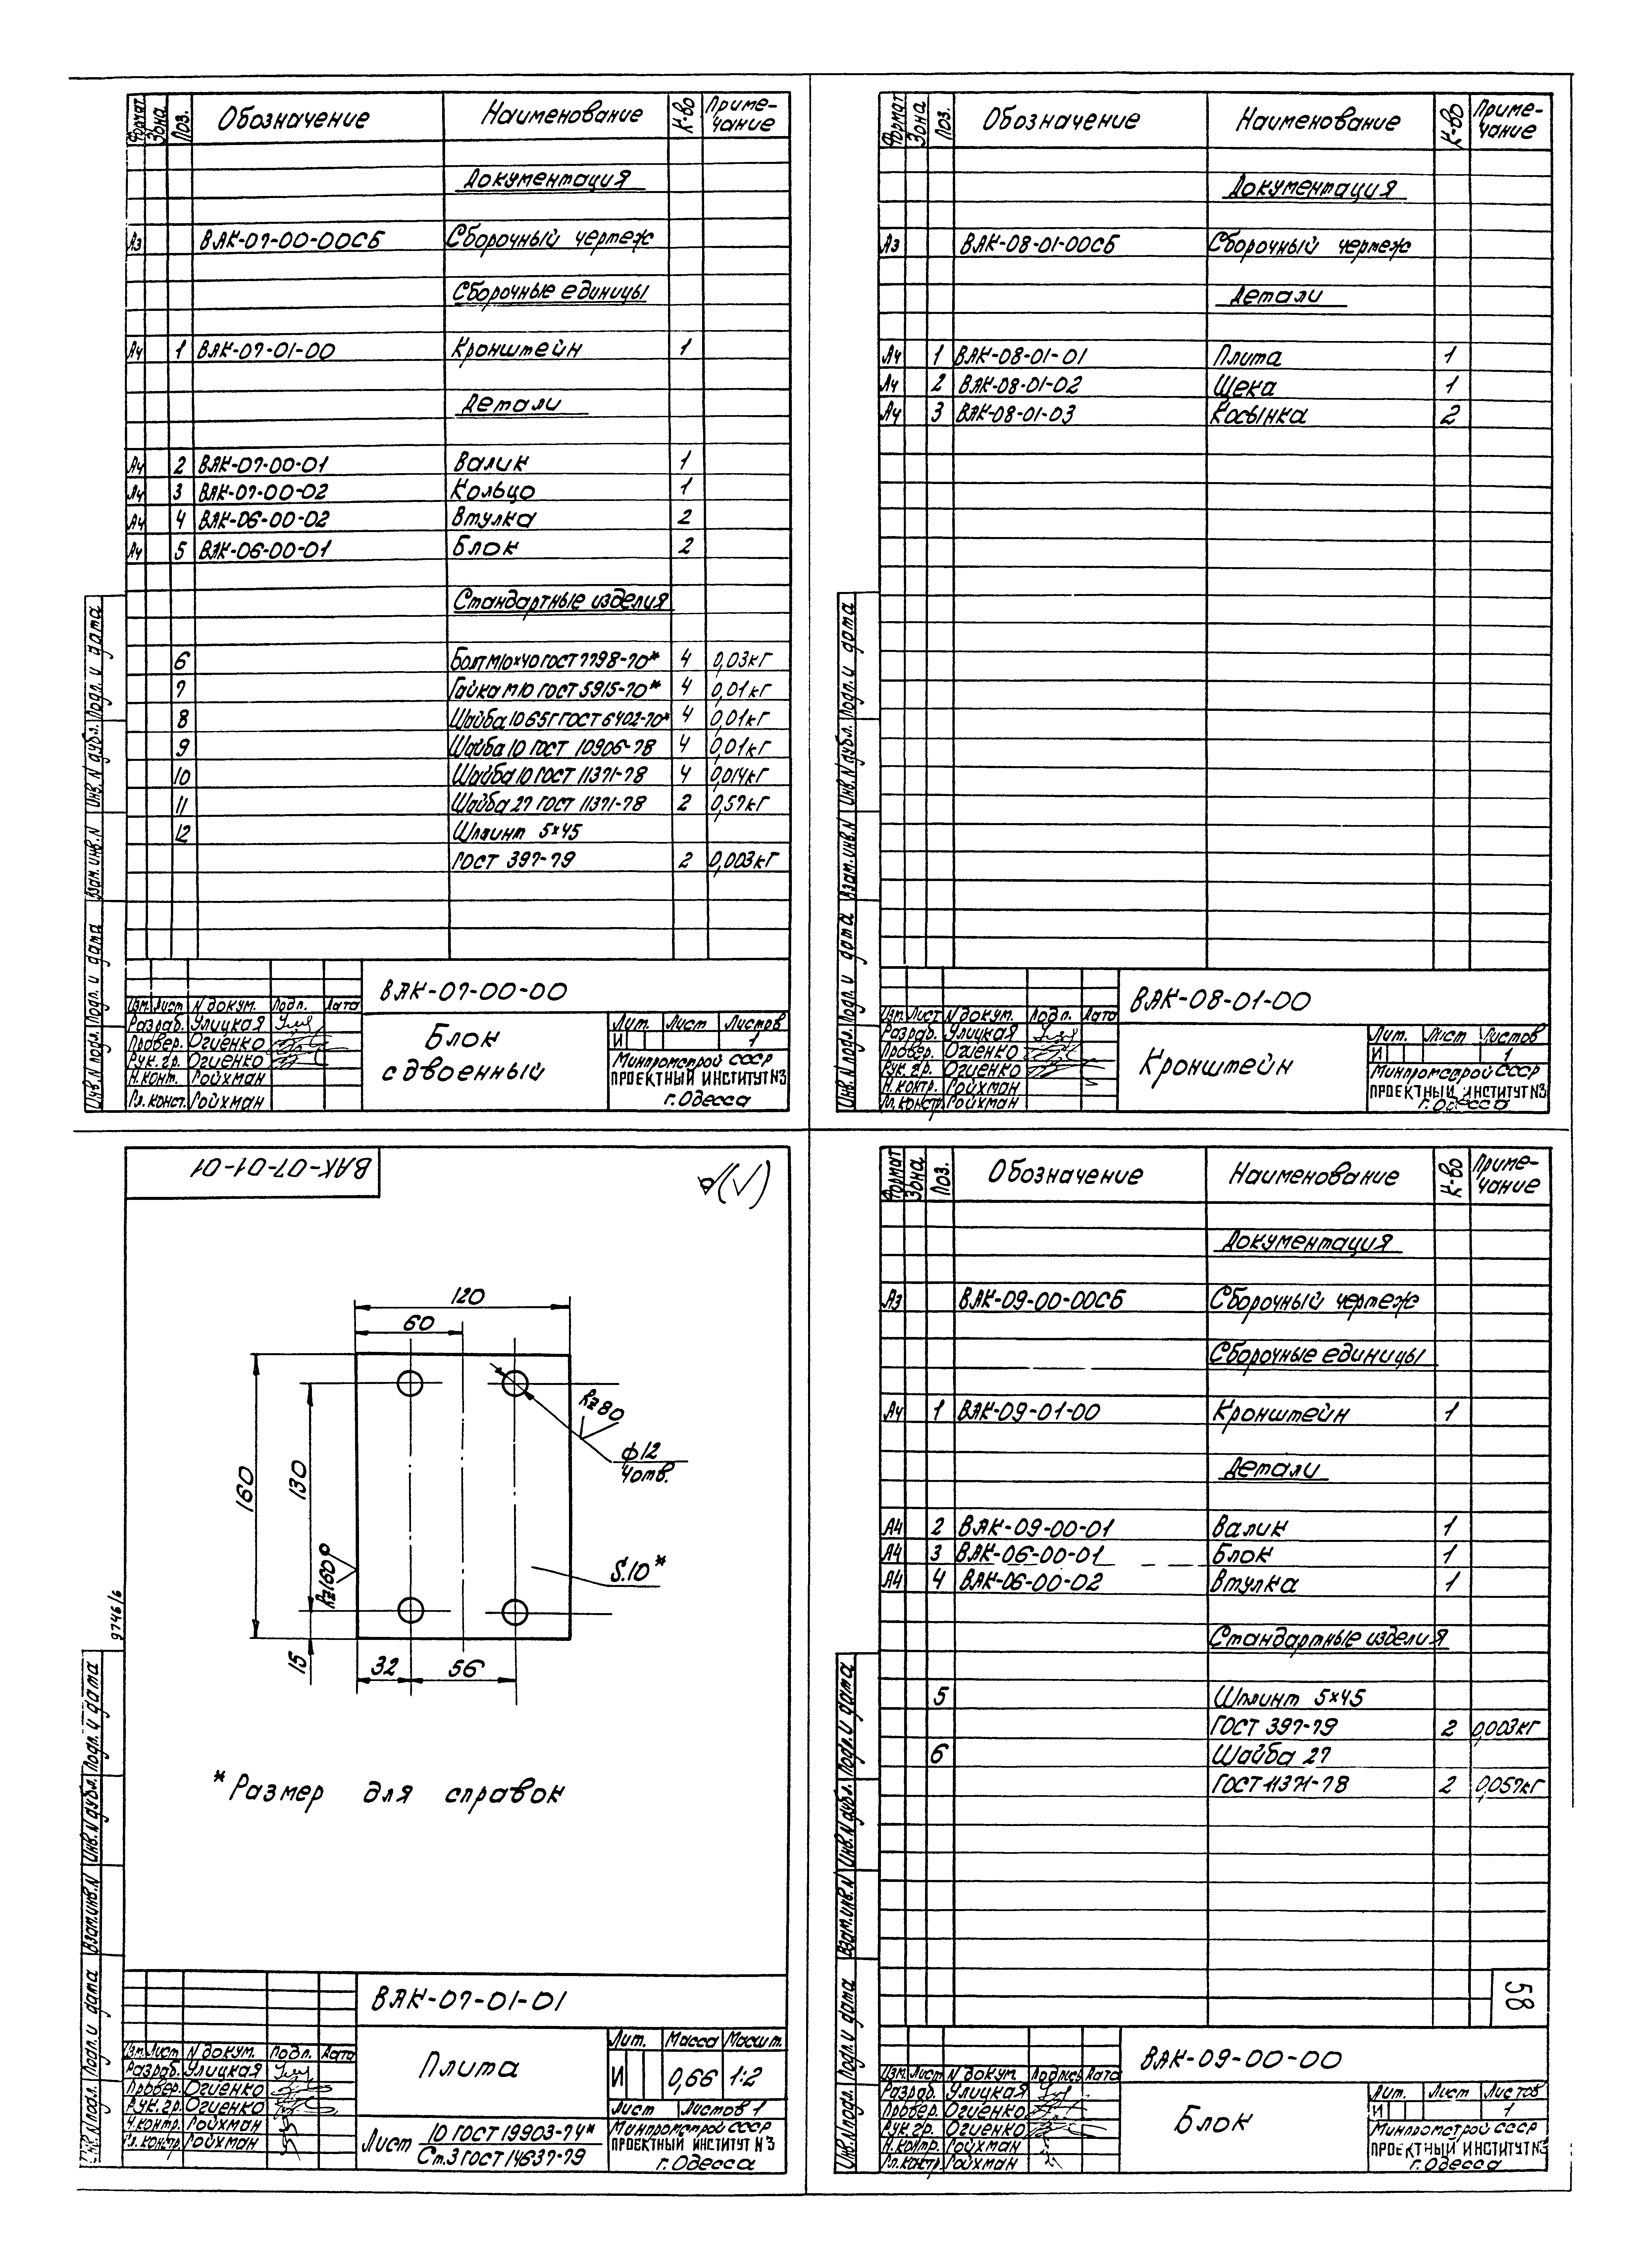 Формат Зона Поз. Обозначение Наименование К-во Приме-
чание
Документация
А3 ВАК-07-00-00СБ Сборочный чертеж
Сборочные единицы
А4 1 ВАК-07-01-00 Кронштейн 1
Детали
А4 2 ВАК-07-00-01 Валик 1
А4 3 ВАК-07-00-02 Кольцо 1
А4 4 ВАК-06-00-02 Втулка 2
А4 5 ВАК-06-00-01 Блок 2
Стандартные изделия
6 Болт М10×40 ГОСТ 7798-70* 4 0,03кг
7 Гайка М10 ГОСТ 5915-70* 4 0,01кг
8 Шайба 10 65Г ГОСТ 6402-70* 4 0,01кг
9 Шайба 10 ГОСТ 10906-78 4 0,01кг
10 Шайба 10 ГОСТ 11371-78 4 0,014кг
11 Шайба 27 ГОСТ 11371-78 2 0,57кг
12 Шплинт 5×45
ГОСТ 397-79 2 0,003кг
Инв.N подл. Подп. и дата Взам.инв.N Инв.N дубл. Подп. и дата
ВАК-07-00-00
Изм. Лист N докум. Подп. Дата
Разраб. Улицкая
Провер. Огиенко
Рук. гр. Огиенко
Н.конт. Гойхман
Гл. конст. Гойхман
Блок
сдвоенный
Лит. Лист Листов
И 1
Минпромстрой СССР
ПРОЕКТНЫЙ ИНСТИТУТ N3
г. Одесса
Формат Зона Поз. Обозначение Наименование К-во Приме-
чание
Документация
А3 ВАК-08-01-00СБ Сборочный чертеж
Детали
А4 1 ВАК-08-01-01 Плита 1
А4 2 ВАК-08-01-02 Щека 1
А4 3 ВАК-08-01-03 Косынка 2
Инв.N подл. Подп. и дата Взам.инв.N Инв.N дубл. Подп. и дата
ВАК-08-01-00
Изм. Лист N докум. Подп. Дата
Разраб. Улицкая
Провер. Огиенко
Рук. гр. Огиенко
Н. контр. Гойхман
Гл. констр. Гойхман
Кронштейн
Лит. Лист Листов
И 1
Минпромстрой СССР
ПРОЕКТНЫЙ ИНСТИТУТ N3
г. Одесса
ВАК-07-01-01
120
60
160
130
15
32
56
Rz80
ϕ12
4отв.
Rz160
S.10*
*Размер для справок
9746/6
Инв.N подл. Подп. и дата Взам.инв.N Инв.N дубл. Подп. и дата
ВАК-07-01-01
Изм. Лист N докум. Подп. Дата
Разраб. Улицкая
Провер. Огиенко
Рук. гр. Огиенко
Н.контр. Гойхман
Гл. контр. Гойхман
Плита
Лит. Масса Масшт.
И 0,66 1:2
Лист Листов 1
Лист 10 ГОСТ 19903-74*
Ст.3 ГОСТ 14637-79
Минпромстрой СССР
ПРОЕКТНЫЙ ИНСТИТУТ N3
г. Одесса
Формат Зона Поз. Обозначение Наименование К-во Приме-
чание
Документация
А3 ВАК-09-00-00СБ Сборочный чертеж
Сборочные единицы
А4 1 ВАК-09-01-00 Кронштейн 1
Детали
А4 2 ВАК-09-00-01 Валик 1
А4 3 ВАК-06-00-01 Блок 1
А4 4 ВАК-06-00-02 Втулка 1
Стандартные изделия
5 Шплинт 5×45
ГОСТ 397-79 2 0,003кг
6 Шайба 27
ГОСТ 11371-78 2 0,057кг
58
Инв.N подл. Подп. и дата Взам.инв.N Инв.N дубл. Подп. и дата
ВАК-09-00-00
Изм. Лист N докум. Подпись Дата
Разраб. Улицкая
Провер. Огиенко
Рук. гр. Огиенко
Н. контр. Гойхман
Гл. констр. Гойхман
Блок
Лит. Лист Листов
И 1
Минпромстрой СССР
ПРОЕКТНЫЙ ИНСТИТУТ N3
г. Одесса